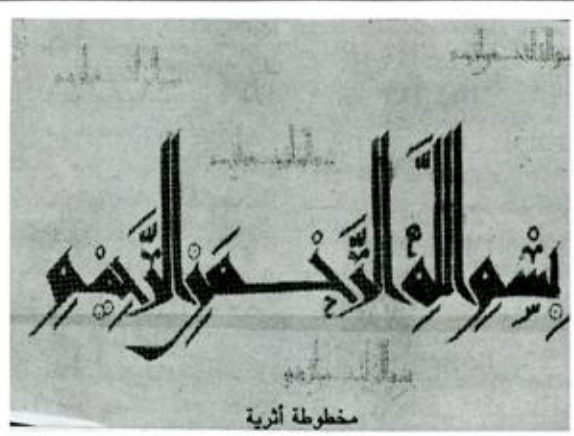 بِسْمِ اللَّهِ الرَّحْمَنِ الرَّحِيمِ
مخطوطة أثرية